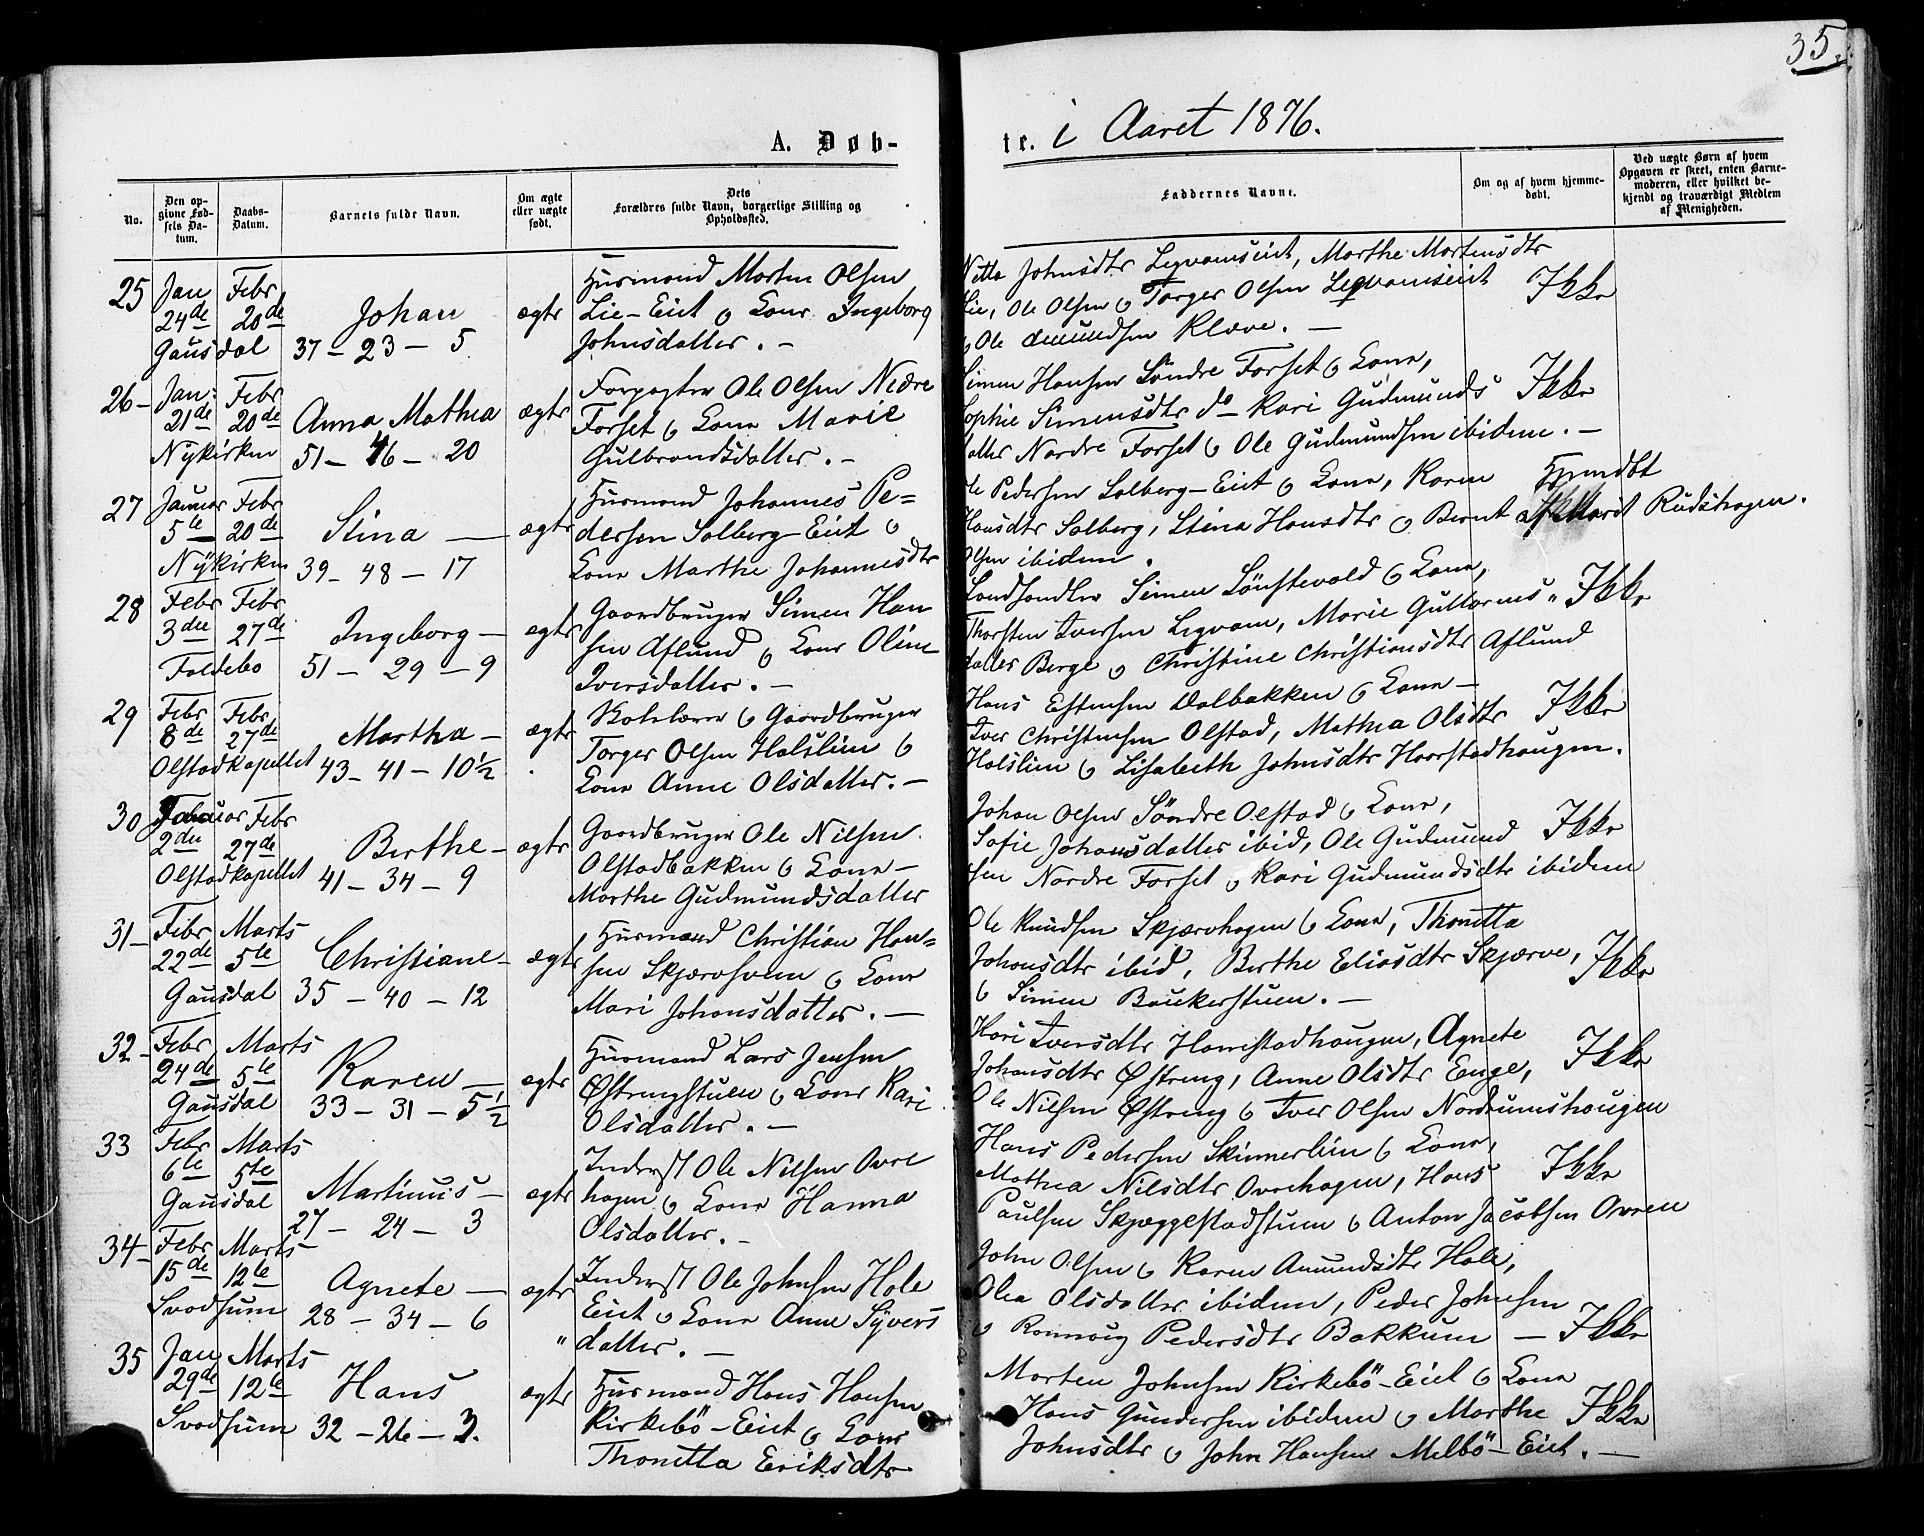 35.
A. Døb-
te. i Aaret 1876.
No.
Den op-
givne Fød-
sels Da-
tum.
Daabs-
Datum.
Barnets fulde Navn.
Om ægte
eller uægte
født.
Dets
Forældres fulde Navn, borgerlige Stilling og
Opholdssted.
Faddernes Navne.
Om og af hvem hjemme-
døbt.
Ved uægte Børn af hvem
Opgaven er skeet, enten Barne-
moderen, eller hvilket be-
kjendt og troværdigt Medlem
af Menigheden.
25 Jan 24de Febr 20de
Gausdal
Johan
37 - 23 - 5
ægte
Husmand Morten Olsen
Lie-Eiet & Kone Ingeborg
Johnsdatter. -
Johnsdtr Legvamseiet, Marthe Mortensdtr
Lie, Ole Olsen & Torger Olsen Legvamseiet
& Ole Amundsen Kleve. -
Ikke
26 - Jan: 21de Febr 20de
Nykirken
Anna Mathea
51 - 46 - 20
ægte
Forpagter Ole Olsen Nedre
Forset & Kone Marie
Gulbrandsdatter. -
Simen Hansen Søndre Forset & Kone,
Sophie Simensdtr do Kari Gudmunds
datter Nordre Forset & Ole Gudmundsen ibidem. -
Ikke
27 Januar 5te Febr 20de
Nykirken
Stina -
39 - 48 - 17
ægte
Husmand Johannes Pe=
dersen Solberg-Eiet &
Kone Marthe Johannesdtr
Ole Pedersen Solberg-Eiet & Kone, Karen
Hansdtr Solberg, Stina Hansdtr & Bernt
Olsen ibidem.
Hjemdbt
af Marit Rudshagen.
28 Febr 3die Febr 27de
Foldebo
Ingeborg -
51 - 29 - 9
ægte
Gaardbruger Simen Han
sen Aflund & Kone Oline
Iversdatter. -
Landhandler Simen Lønstevold & Kone,
Thorsten Iversen Legvam, Marie Guttorms"
datter Berge & Christine Christiansdtr Aflund
Ikke
29 Febr 8de Febr 27de
Olstadkapellet
Martha -
43 - 41 - 10½
ægte
Skolelærer & Gaardbruger
Torger Olsen Holslien &
Kone Anne Olsdatter. -
Hans Estensen Dalbakken & Kone -
Iver Christensen Olstad, Mathea Olsdtr
Holslien & Lisabeth Johnsdtr Haarstadhaugen.
Ikke
30 Februar 2den Febr 27de
Olstadkapellet
Berthe -
41 - 34 - 9
ægte
Gaardbruger Ole Nilsen
Olstadbakken & Kone -
Marthe Gudmundsdatter
Johan Olsen Søndre Olstad & Kone,
Sofie Johansdatter ibid, Ole Gudmund
sen Nordre Forset & Kari Gudmundsdtr ibidem
Ikke
31 - Febr 22de Marts 5te
Gausdal
Christiane -
35 - 40 - 12
ægte
Husmand Christian Han=
sen Skjærvsveen & Kone
Mari Johansdatter. -
Ole Knudsen Skjærvhagen & Kone, Thonetta
Johansdtr ibid, Berthe Eliasdtr Skjærve,
& Simen Baukerstuen. -
Ikke
32 - Febr 24de Marts 5te
Gausdal
Karen -
33 - 31 - 5½
ægte
Husmand Lars Jensen
Østrengstuen & Kone Kari
Olsdatter. -
Kari Iversdtr Harrestadhaugen, Agnete
Johansdtr Østreng, Anne Olsdtr Enge,
Ole Nilsen Østreng & Iver Olsen Nordrumshaugen
Ikke
33 Febr 6te Marts 5te
Gausdal
Martinus -
27 - 24 - 3
ægte
Inderst Ole Nilsen Ovre
hagen & Kone Hanna
Olsdatter. -
Hans Pedersen Skinnerlien & Kone,
Mathea Nilsdtr Ovrehagen, Hans
Paulsen Skjæggestadstuen & Anton Jacobsen Ovren
Ikke
34 - Febr 15de Marts 12te
Svodsum
Agnete -
28 - 34 - 6
ægte
Inderst Ole Johnsen Hole
Eiet & Kone Anne Syvers
" datter. -
John Olsen & Karen Amundsdtr Hole,
Olea Olsdatter ibidem, Peder Johnsen
& Ronnoug Pedersdtr Bakkum - Ikke
35 Jan 29de Marts 12te
Svodsum
Hans
32 - 26 - 3.
ægte
Husmand Hans Hansen
Kirkebö-Eiet & Kone
Thonetta Eriksdtr
Morten Johnsen Kirkebö-Eiet & Kone
Hans Gundersen ibidem & Marthe
Johnsdtr & John Hansen Melbö-Eiet. -
Ikke